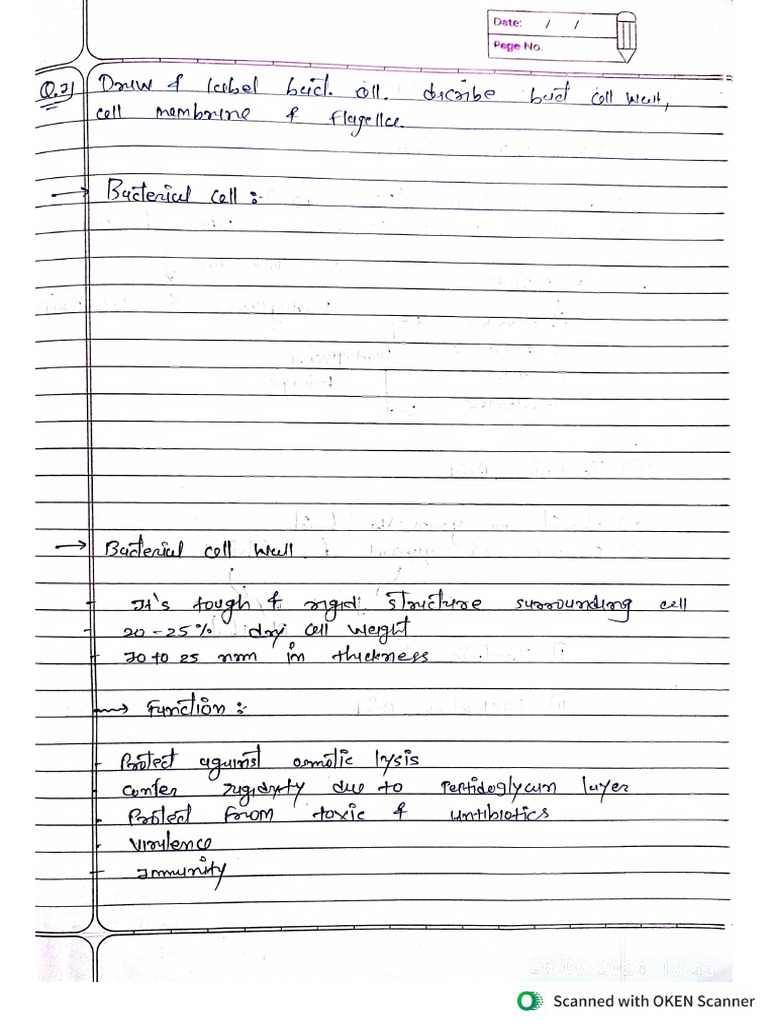 Date: / /
Page No.
Q.2] Draw & label bact. cell. discribe bact cell wall,
cell membrane & flagella.
→ Bacterial cell :-
→ Bacterial cell wall.
- It's tough & rigid structure surrounding cell
- 20-25% dry cell weight
- 10 to 25 nm in thickness
→ Function :-
- Protect against osmotic lysis
- confer rigidity due to peptidoglycan layer
- Protect from toxic & antibiotics
- virulence
- Immunity
Scanned with OKEN Scanner